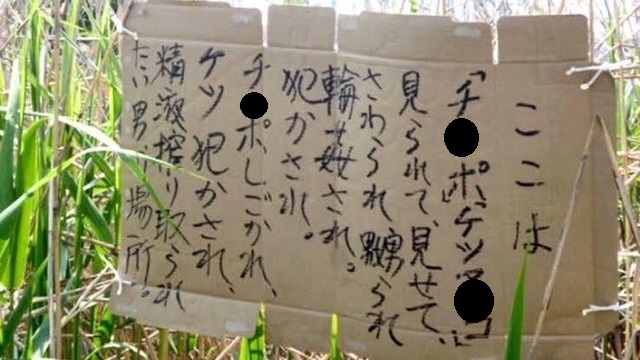 ここは
「チ●ポ」ケツマ●コ」
見られて、見せて、
さわられ、嬲られ
輪姦され。
犯かされ。
チ●ポしごかれ、
ケツ 犯かされ、
精液搾り取られ
たい男 場所。